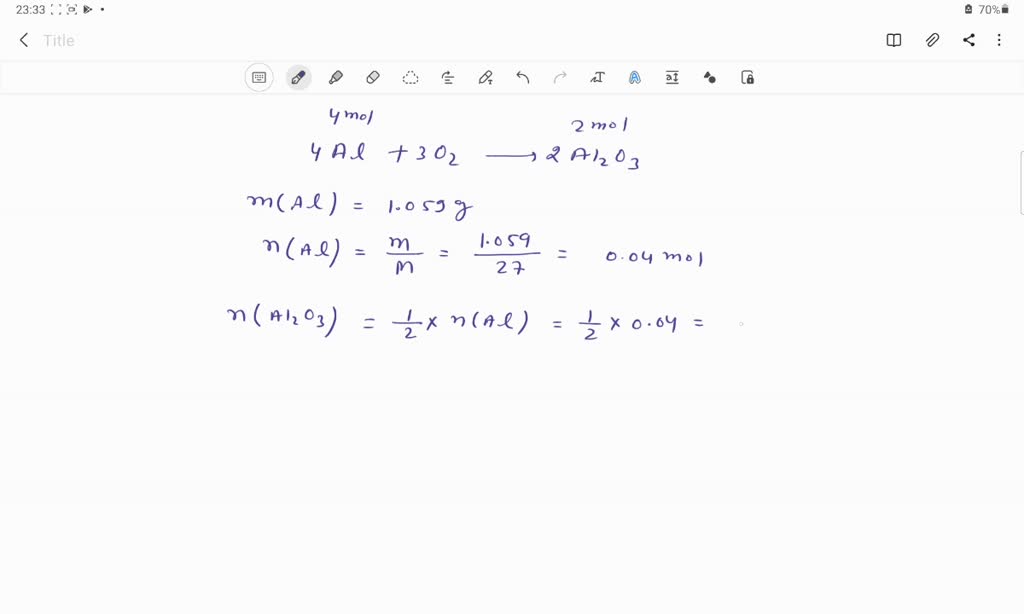 23:33
70%
Title
4 mol 2 mol
4 Al + 3 O2 ⟶ 2 Al2O3
m(Al) = 1.059 g
n(Al) = m/M = 1.059/27 = 0.04 mol
n(Al2O3) = 1/2 × n(Al) = 1/2 × 0.04 =